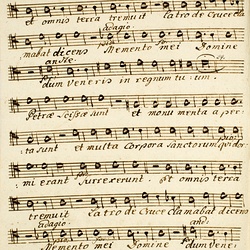 et omnis terra tremuit Latro de Cruce cla
Adagio
mabat dicens Memento mei Domine
andte.
dum veneris in regnum tuum.
Petræ Scissæ sunt et monumenta aper
ta sunt et multa Corpora sanctorum qui dor
mierant surrexerunt. et omnis terra
tremuit Latro de Cruce clamabat dicens
Adagio and:
Memento mei Domine dum vene